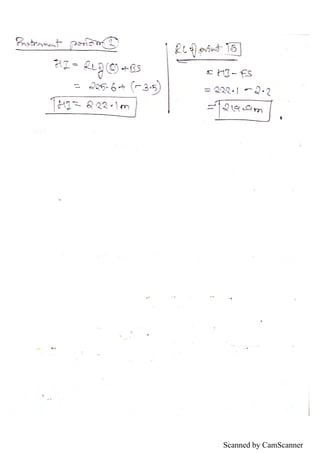 Instrument position ③
HI = RL of (6) + BS
= 225.6 + (-3.5)
HI = 222.1m
RL of point 7B
= HI - FS
= 222.1 - 2.2
= 219.9m
Scanned by CamScanner